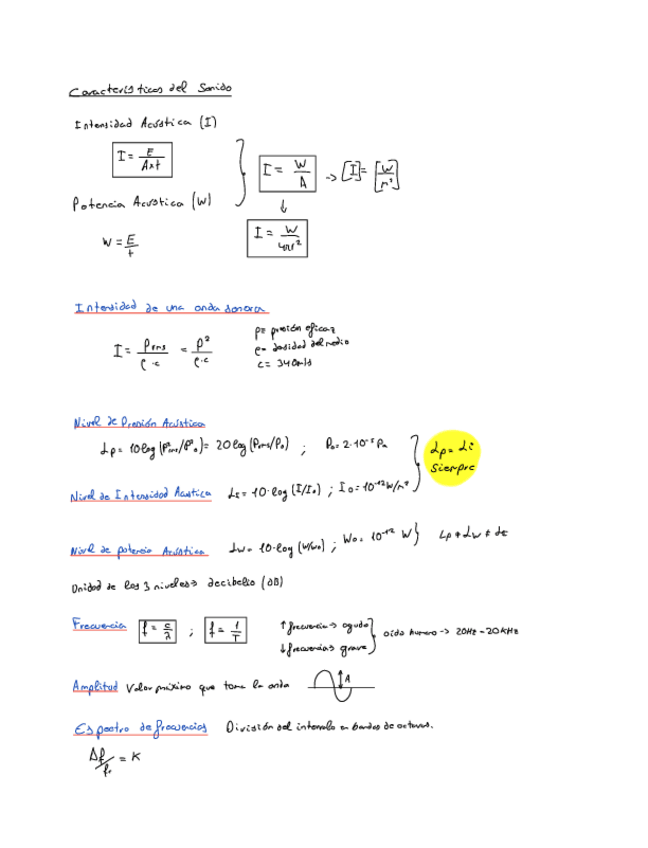 Características del Sonido
Intensidad Acústica (I)
I = E / A×t
I = W / A → [I] = [W / m²]
Potencia Acústica (W)
↓
W = E / t
I = W / 4πr²
Intensidad de una onda sonora
I = Prms / ρ·c = P² / ρ·c
p= presión eficaz
ρ= densidad del medio
c= 340m/s
Nivel de Presión Acústica
Lp = 10log (P²rms/P²o) = 20log (Prms/Po) ; Po = 2·10⁻⁵ Pa
Lp = Li
Siempre
Nivel de Intensidad Acústica LI = 10·log (I/Io) ; Io = 10⁻¹² W/m²
Nivel de potencia Acústica Lw = 10·log (W/Wo) ; Wo = 10⁻¹² W Lp ≠ Lw ≠ LI
Unidad de los 3 niveles → decibelio (dB)
Frecuencia f = c / λ ; f = 1 / T
↑ frecuencia → agudo
↓ frecuencias grave
oído humano → 20Hz - 20KHz
Amplitud Valor máximo que toma la onda A
Espectro de frecuencias División del intervalo en bandas de octavas.
Δf / fc = K